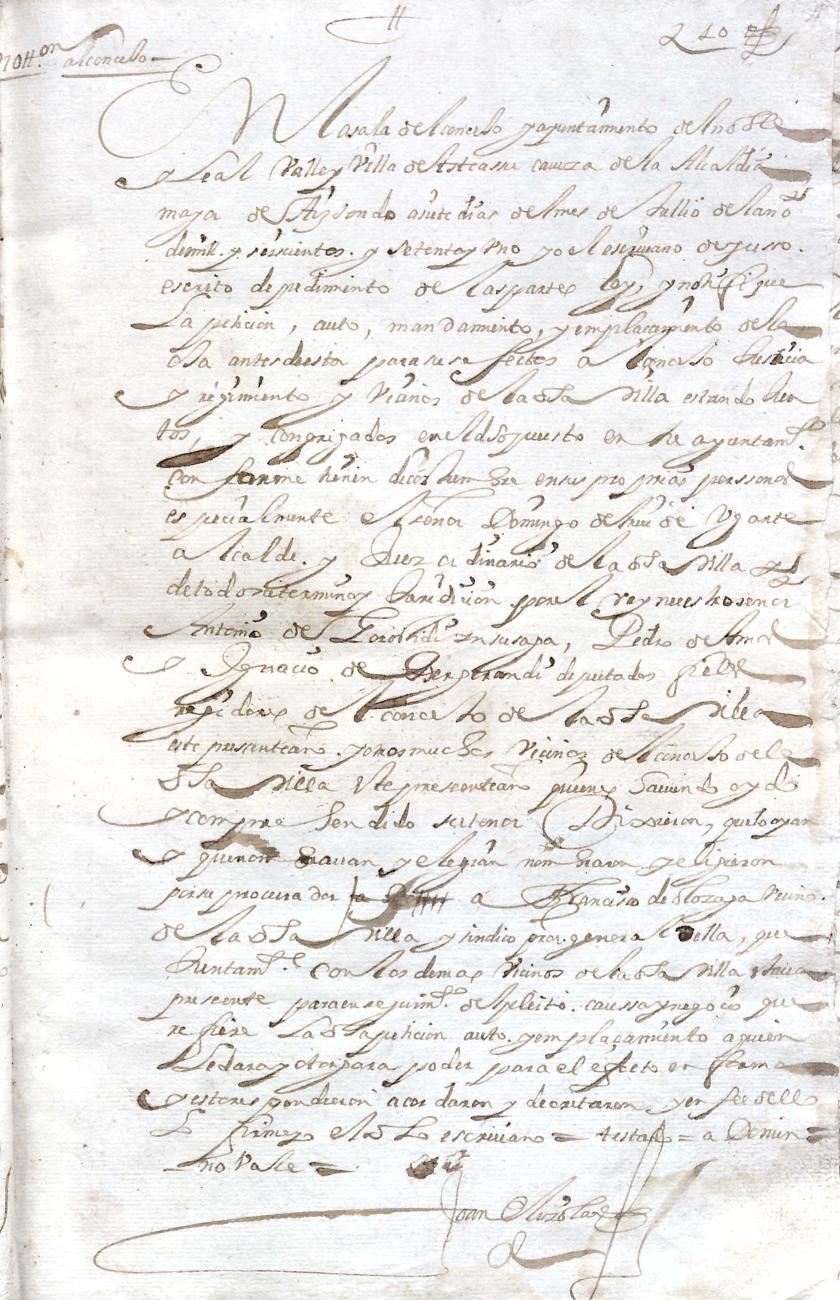 210 rs
Notton. al concejo
En la sala del concejo y ayuntamiento del noble
y Leal Valle y Villa de Asteasu caveza de la Alcaldia
mayor de Ayztondo a siete dias del mes de Jullio del año
de mill y seiscientos y setenta y uno yo el escrivano de yusso
escrito de pedimiento de las partes ley, y notifique
La peticion, auto, mandamiento, y emplaçamiento de la
oja antes desta para sus efectos a el concejo Justicia
y regimiento y vecinos de la dha villa estando jun
tos, y congregados en el dho puesto en su ayuntamto.
conforme tienen de costumbre en sus proprias perssonas
especialmente el señor Domingo de Ugarte
alcalde y Juez ordinario de la dha villa y
de todo su termino y Juridicion por el rey nuestro señor
Antonio de Pedro de
y Ignacio de diputados fieles
regidores del concejo de la dha villa
este presente año y otros muchos vecinos del concejo de la
dha villa este presente año quienes haviendo oydo
y comprehendido su tenor Dixieron, que lo oyan
y que nombravan y elegian nombraron y eligieron
por su procurador a Francisco de Olozaga vecino
de la dha villa y sindico pror. general della, que
Juntamte. con los demas vecinos de la dha villa
presente para en seguimto. del pleito caussa y negocio que
refiere La dha peticion auto y emplaçamiento a quien
Le dara y otorgara poder para el efecto en forma
y esto respondieron acordaron y decretaron y en fee dello
Lo firme yo el dho escrivano = testado = a Domin
no Vale =
Joan